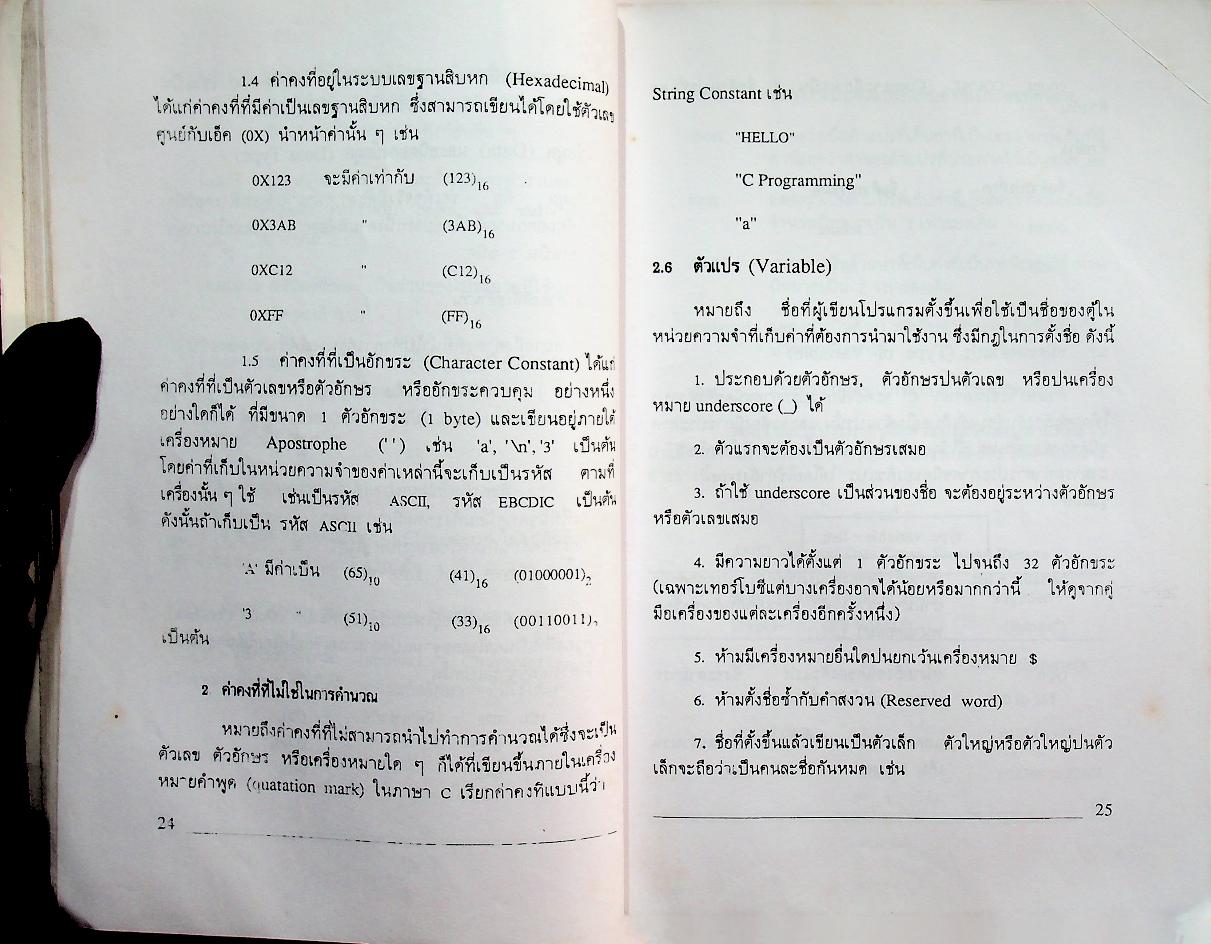 1.4 ค่าคงที่อยู่ในระบบเลขฐานสิบหก (Hexadecimal)
ได้แก่ค่าคงที่ที่มีค่าเป็นเลขฐานสิบหก ซึ่งสามารถเขียนได้โดยใช้ตัวเลข
ศูนย์กับเอ็ค (0X) นำหน้าค่านั้น ๆ เช่น
0X123 จะมีค่าเท่ากับ (123)16
0X3AB " (3AB)16
0XC12 " (C12)16
0XFF " (FF)16
1.5 ค่าคงที่ที่เป็นอักขระ (Character Constant) ได้แก่
ค่าคงที่ที่เป็นตัวเลขหรือตัวอักษร หรืออักขระควบคุม อย่างหนึ่ง
อย่างใดก็ได้ ที่มีขนาด 1 ตัวอักขระ (1 byte) และเขียนอยู่ภายใต้
เครื่องหมาย Apostrophe (' ') เช่น 'a', '\n', '3' เป็นต้น
โดยค่าที่เก็บในหน่วยความจำของค่าเหล่านี้จะเก็บเป็นรหัส ตามที่
เครื่องนั้น ๆ ใช้ เช่นเป็นรหัส ASCII, รหัส EBCDIC เป็นต้น
ดังนั้นถ้าเก็บเป็น รหัส ASCII เช่น
'A' มีค่าเป็น (65)10 (41)16 (01000001)2
'3 " (51)10 (33)16 (00110011)2
เป็นต้น
2 ค่าคงที่ที่ไม่ใช่ในการคำนวณ
หมายถึงค่าคงที่ที่ไม่สามารถนำไปทำการคำนวณได้ซึ่งจะเป็น
ตัวเลข ตัวอักษร หรือเครื่องหมายใด ๆ ก็ได้ที่เขียนขึ้นภายในเครื่อง
หมายคำพูด (quatation mark) ในภาษา C เรียกค่าคงที่แบบนี้ว่า
24
String Constant เช่น
"HELLO"
"C Programming"
"a"
2.6 ตัวแปร (Variable)
หมายถึง ชื่อที่ผู้เขียนโปรแกรมตั้งขึ้นเพื่อใช้เป็นชื่อของตู้ใน
หน่วยความจำที่เก็บค่าที่ต้องการนำมาใช้งาน ซึ่งมีกฎในการตั้งชื่อ ดังนี้
1. ประกอบด้วยตัวอักษร, ตัวอักษรปนตัวเลข หรือปนเครื่อง
หมาย underscore (_) ได้
2. ตัวแรกจะต้องเป็นตัวอักษรเสมอ
3. ถ้าใช้ underscore เป็นส่วนของชื่อ จะต้องอยู่ระหว่างตัวอักษร
หรือตัวเลขเสมอ
4. มีความยาวได้ตั้งแต่ 1 ตัวอักขระ ไปจนถึง 32 ตัวอักขระ
(เฉพาะเทอร์โบซีแต่บางเครื่องอาจได้น้อยหรือมากกว่านี้ ให้ดูจากคู่
มือเครื่องของแต่ละเครื่องอีกครั้งหนึ่ง)
5. ห้ามมีเครื่องหมายอื่นใดปนยกเว้นเครื่องหมาย $
6. ห้ามตั้งชื่อซ้ำกับคำสงวน (Reserved word)
7. ชื่อที่ตั้งขึ้นแล้วเขียนเป็นตัวเล็ก ตัวใหญ่หรือตัวใหญ่ปนตัว
เล็กจะถือว่าเป็นคนละชื่อกันหมด เช่น
25